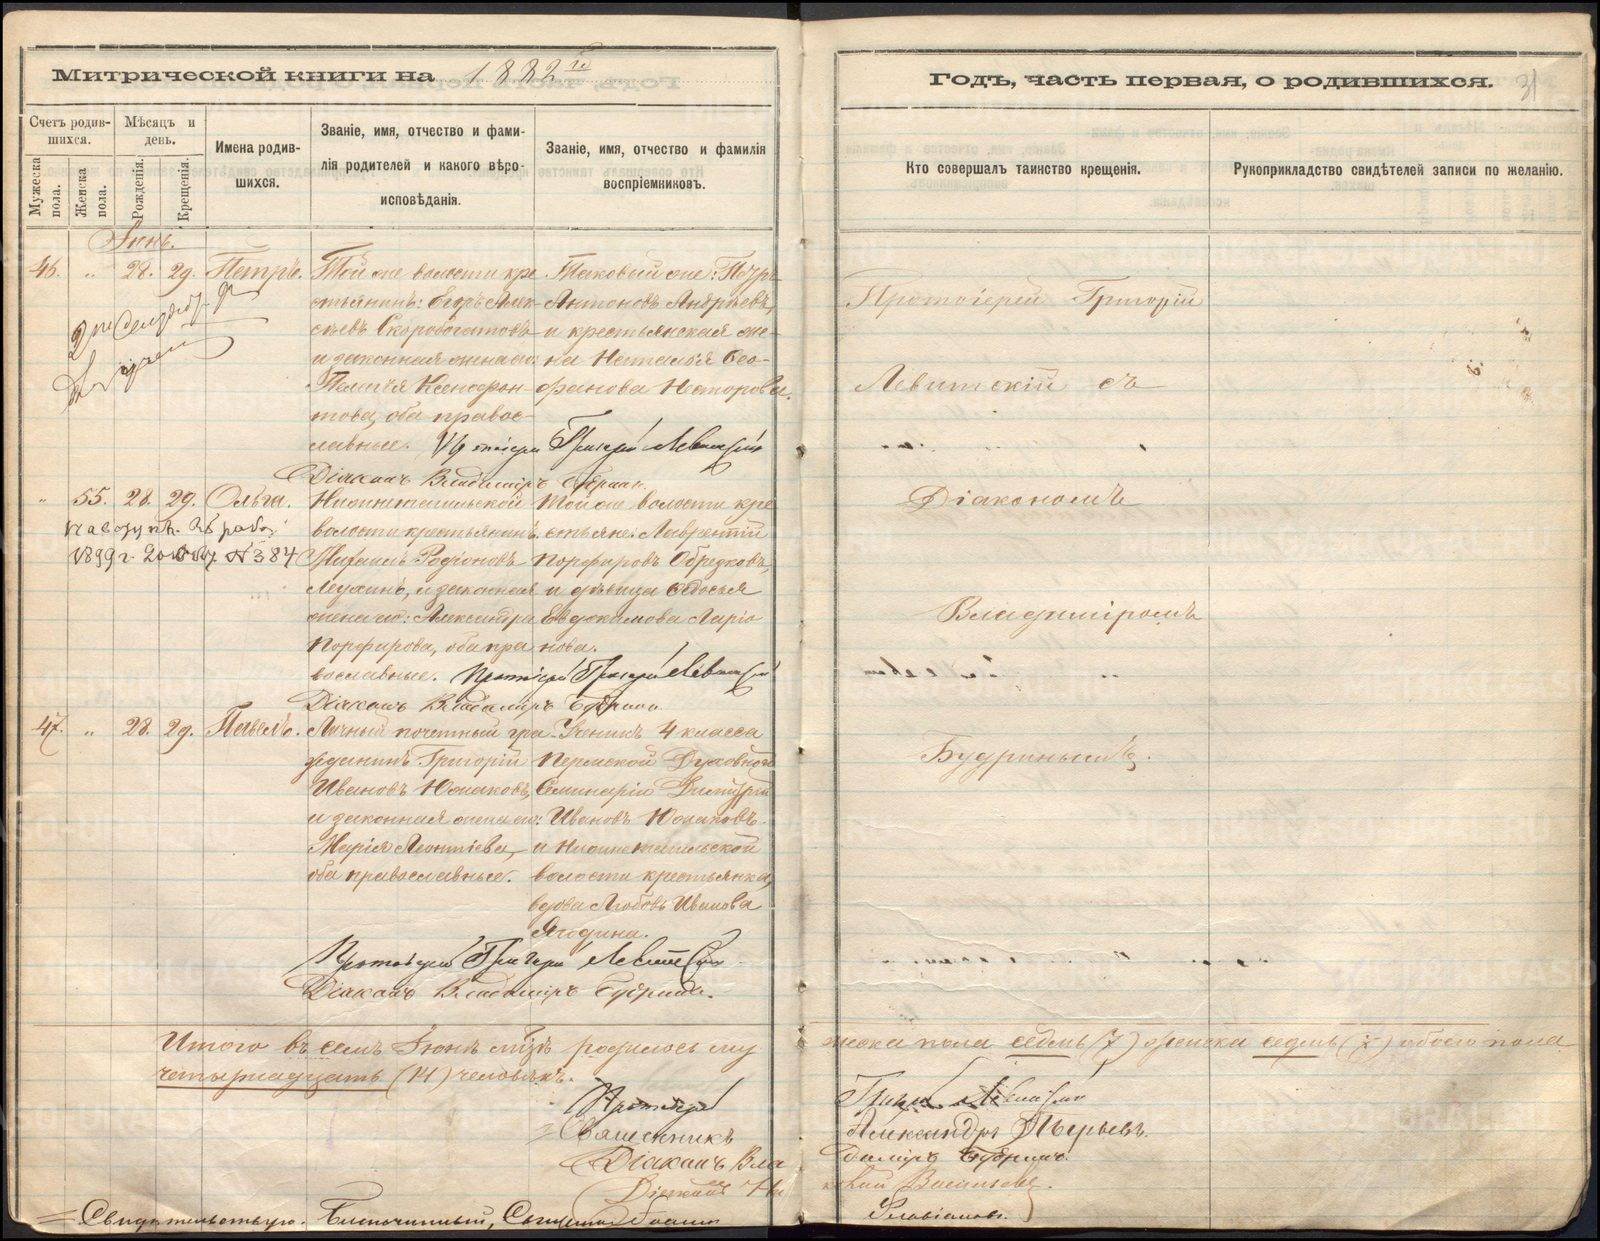 Митрической книги на 1882 го
Годъ, часть первая, о родившихся.
31
Счетъ родив-
шихся.
Мужеска
пола.
Женска
пола.
Мѣсяцъ и
день.
Рожденія.
Крещенія.
Имена родив-
шихся.
Званіе, имя, отчество и фами-
лія родителей и какого вѣро-
исповѣданія.
Званіе, имя, отчество и фамилія
воспріемниковъ.
Кто совершалъ таинство крещенія.
Рукоприкладство свидѣтелей записи по желанію.
Іюнь.
46. " 28. 29. Петръ.
Той же волости кре
стьянинъ: Егоръ Алек-
сѣевъ Скоробогатовъ
и законная жена его:
Пелагія Ксенофон-
това, оба правос-
лавные.
Таковый же: Петръ
Антоновъ Андреевъ,
и крестьянская же-
на Наталья Ѳео-
фанова Назарова.
Протоіерей Григорій Левитскій
Діаконъ Владиміръ Будринъ
" 55. 28. 29. Ольга.
1899 г. 20 № 384
Нижнетагильской
волости крестьянинъ
Михаилъ Родіоновъ
и законная
жена его: Александра
Порфирова, оба пра
вославные.
Той же волости кре
стьяне: Лаврентій
Порфировъ Обрезковъ,
и дѣвица Ѳедосья
Евдокимова Ларіо
нова.
Протоіерей Григорій Левитскій
Діаконъ Владиміръ Будринъ
47. " 28. 29. Павелъ.
Личный почетный гра-
жданинъ Григорій
Ивановъ Южаковъ,
и законная жена его:
Марія Леонтіева,
оба православные.
Ученикъ 4 класса
Пермской Духовной
Семинаріи Димитрій
Ивановъ Южаковъ
и Нижнетагильской
волости крестьянка,
вдова Любовь Иванова
Ягодина.
Протоіерей Григорій Левитскій
Діаконъ Владиміръ Будринъ.
Протоіерей Григорій
Левитскій съ
Діакономъ
Владиміромъ
Будринымъ.
Итого въ семъ Іюнѣ м-цѣ родилось му
жеска пола седмь (7) женска седмь (7) обоего пола
четырнадцать (14) человѣкъ.
Протоіерей Григорій Левитскій
Священникъ Александръ
Діаконъ Вла
диміръ Будринъ.
Діаконъ Ни
колай Васильевъ.
Свидѣтельствую. Благочинный, Священникъ